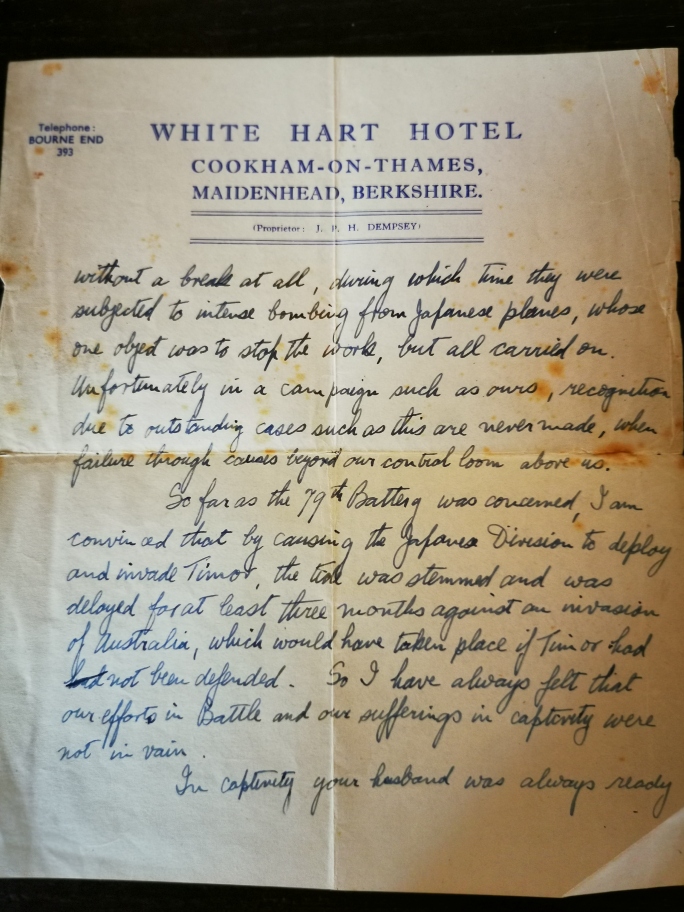 Telephone:
BOURNE END
393
WHITE HART HOTEL
COOKHAM-ON-THAMES,
MAIDENHEAD, BERKSHIRE.
(Proprietor: J. P. H. DEMPSEY)
without a break at all, during which time they were
subjected to intense bombing from Japanese planes, whose
one object was to stop the work, but all carried on.
Unfortunately in a campaign such as ours, recognition
due to outstanding cases such as this are never made, when
failure through causes beyond our control loom above us.
So far as the 79th Battery was concerned, I am
convinced that by causing the Japanese Division to deploy
and invade Timor, the tide was stemmed and was
delayed for at least three months against an invasion
of Australia, which would have taken place if Timor had
not been defended. So I have always felt that
our efforts in Battle and our sufferings in captivity were
not in vain.
In captivity your husband was always ready